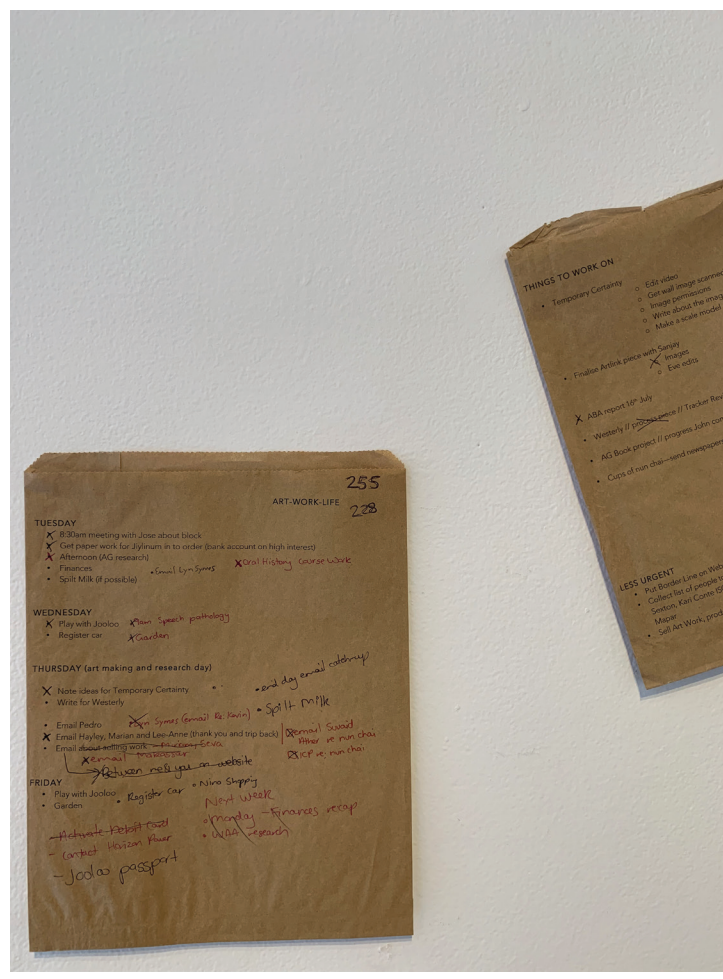 255
ART-WORK-LIFE
228
TUESDAY
8:30am meeting with Jose about block
Get paper work for Jiylinum in to order (bank account on high interest)
Afternoon (AG research)
Finances
Email Lyn Symes
Oral History course work
Spilt Milk (if possible)
WEDNESDAY
Play with Jooloo
9am Speech pathology
Register car
Garden
THURSDAY (art making and research day)
end day email catch up
Note ideas for Temporary Certainty
Write for Westerly
Spilt Milk
Email Pedro
Lyn Symes (email Re: Kevin)
Email Hayley, Marian and Lee-Anne (thank you and trip back)
email Suvaid
Ather re nun chai
Email about selling work
email
ICP re: nun chai
Between me & you on website
FRIDAY
Play with Jooloo
Register Car
Nino Shopping
Garden
Next week
Monday – Finances recap
WAA research
Activate Debit Card
Contact Horizon Power
Jooloo passport
THINGS TO WORK ON
Temporary Certainty
Edit video
Get wall image scanned
Image permissions
Write about the
Make a scale model
Finalise Artlink piece with Sanjay
Images
Eve edits
ABA report 16th July
Westerly // process piece // Tracker
AG Book project // progress John
Cups of nun chai—send newspaper
LESS URGENT
Put Border Line on
Collect list of people
Sexton, Kari Conte
Mapar
Sell Art Work,